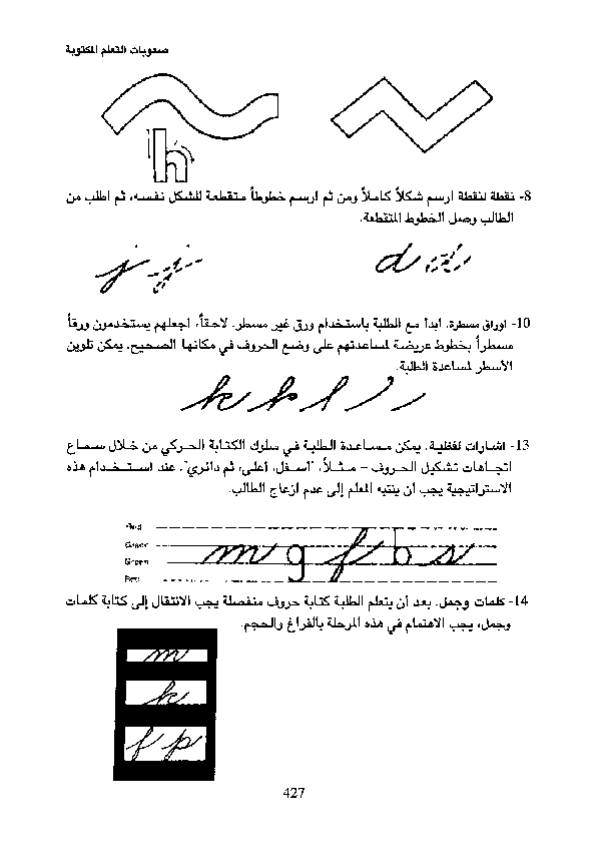 صعوبات التعلم المكتوبة
h
8- نقطة لنقطة ارسم شكلاً كاملاً ومن ثم ارسم خطوطاً متقطعة للشكل نفسه، ثم اطلب من
الطالب وصل الخطوط المتقطعة.
j j d d
10- اوراق مسطرة. ابدأ مع الطلبة باستخدام ورق غير مسطر. لاحقاً، اجعلهم يستخدمون ورقاً
مسطراً بخطوط عريضة لمساعدتهم على وضع الحروف في مكانها الصحيح. يمكن تلوين
الأسطر لمساعدة الطلبة.
k k l
13- اشارات لفظية. يمكن مساعدة الطلبة في سلوك الكتابة الحركي من خلال سماع
اتجاهات تشكيل الحروف – مثلاً، "اسفل، أعلى، ثم دائري". عند استخدام هذه
الاستراتيجية يجب أن ينتبه المعلم إلى عدم ازعاج الطالب.
Red
Green
Green
Red
m g f b s
14- كلمات وجمل. بعد أن يتعلم الطلبة كتابة حروف منفصلة يجب الانتقال إلى كتابة كلمات
وجمل، يجب الاهتمام في هذه المرحلة بالفراغ والحجم.
m
k
f p
427